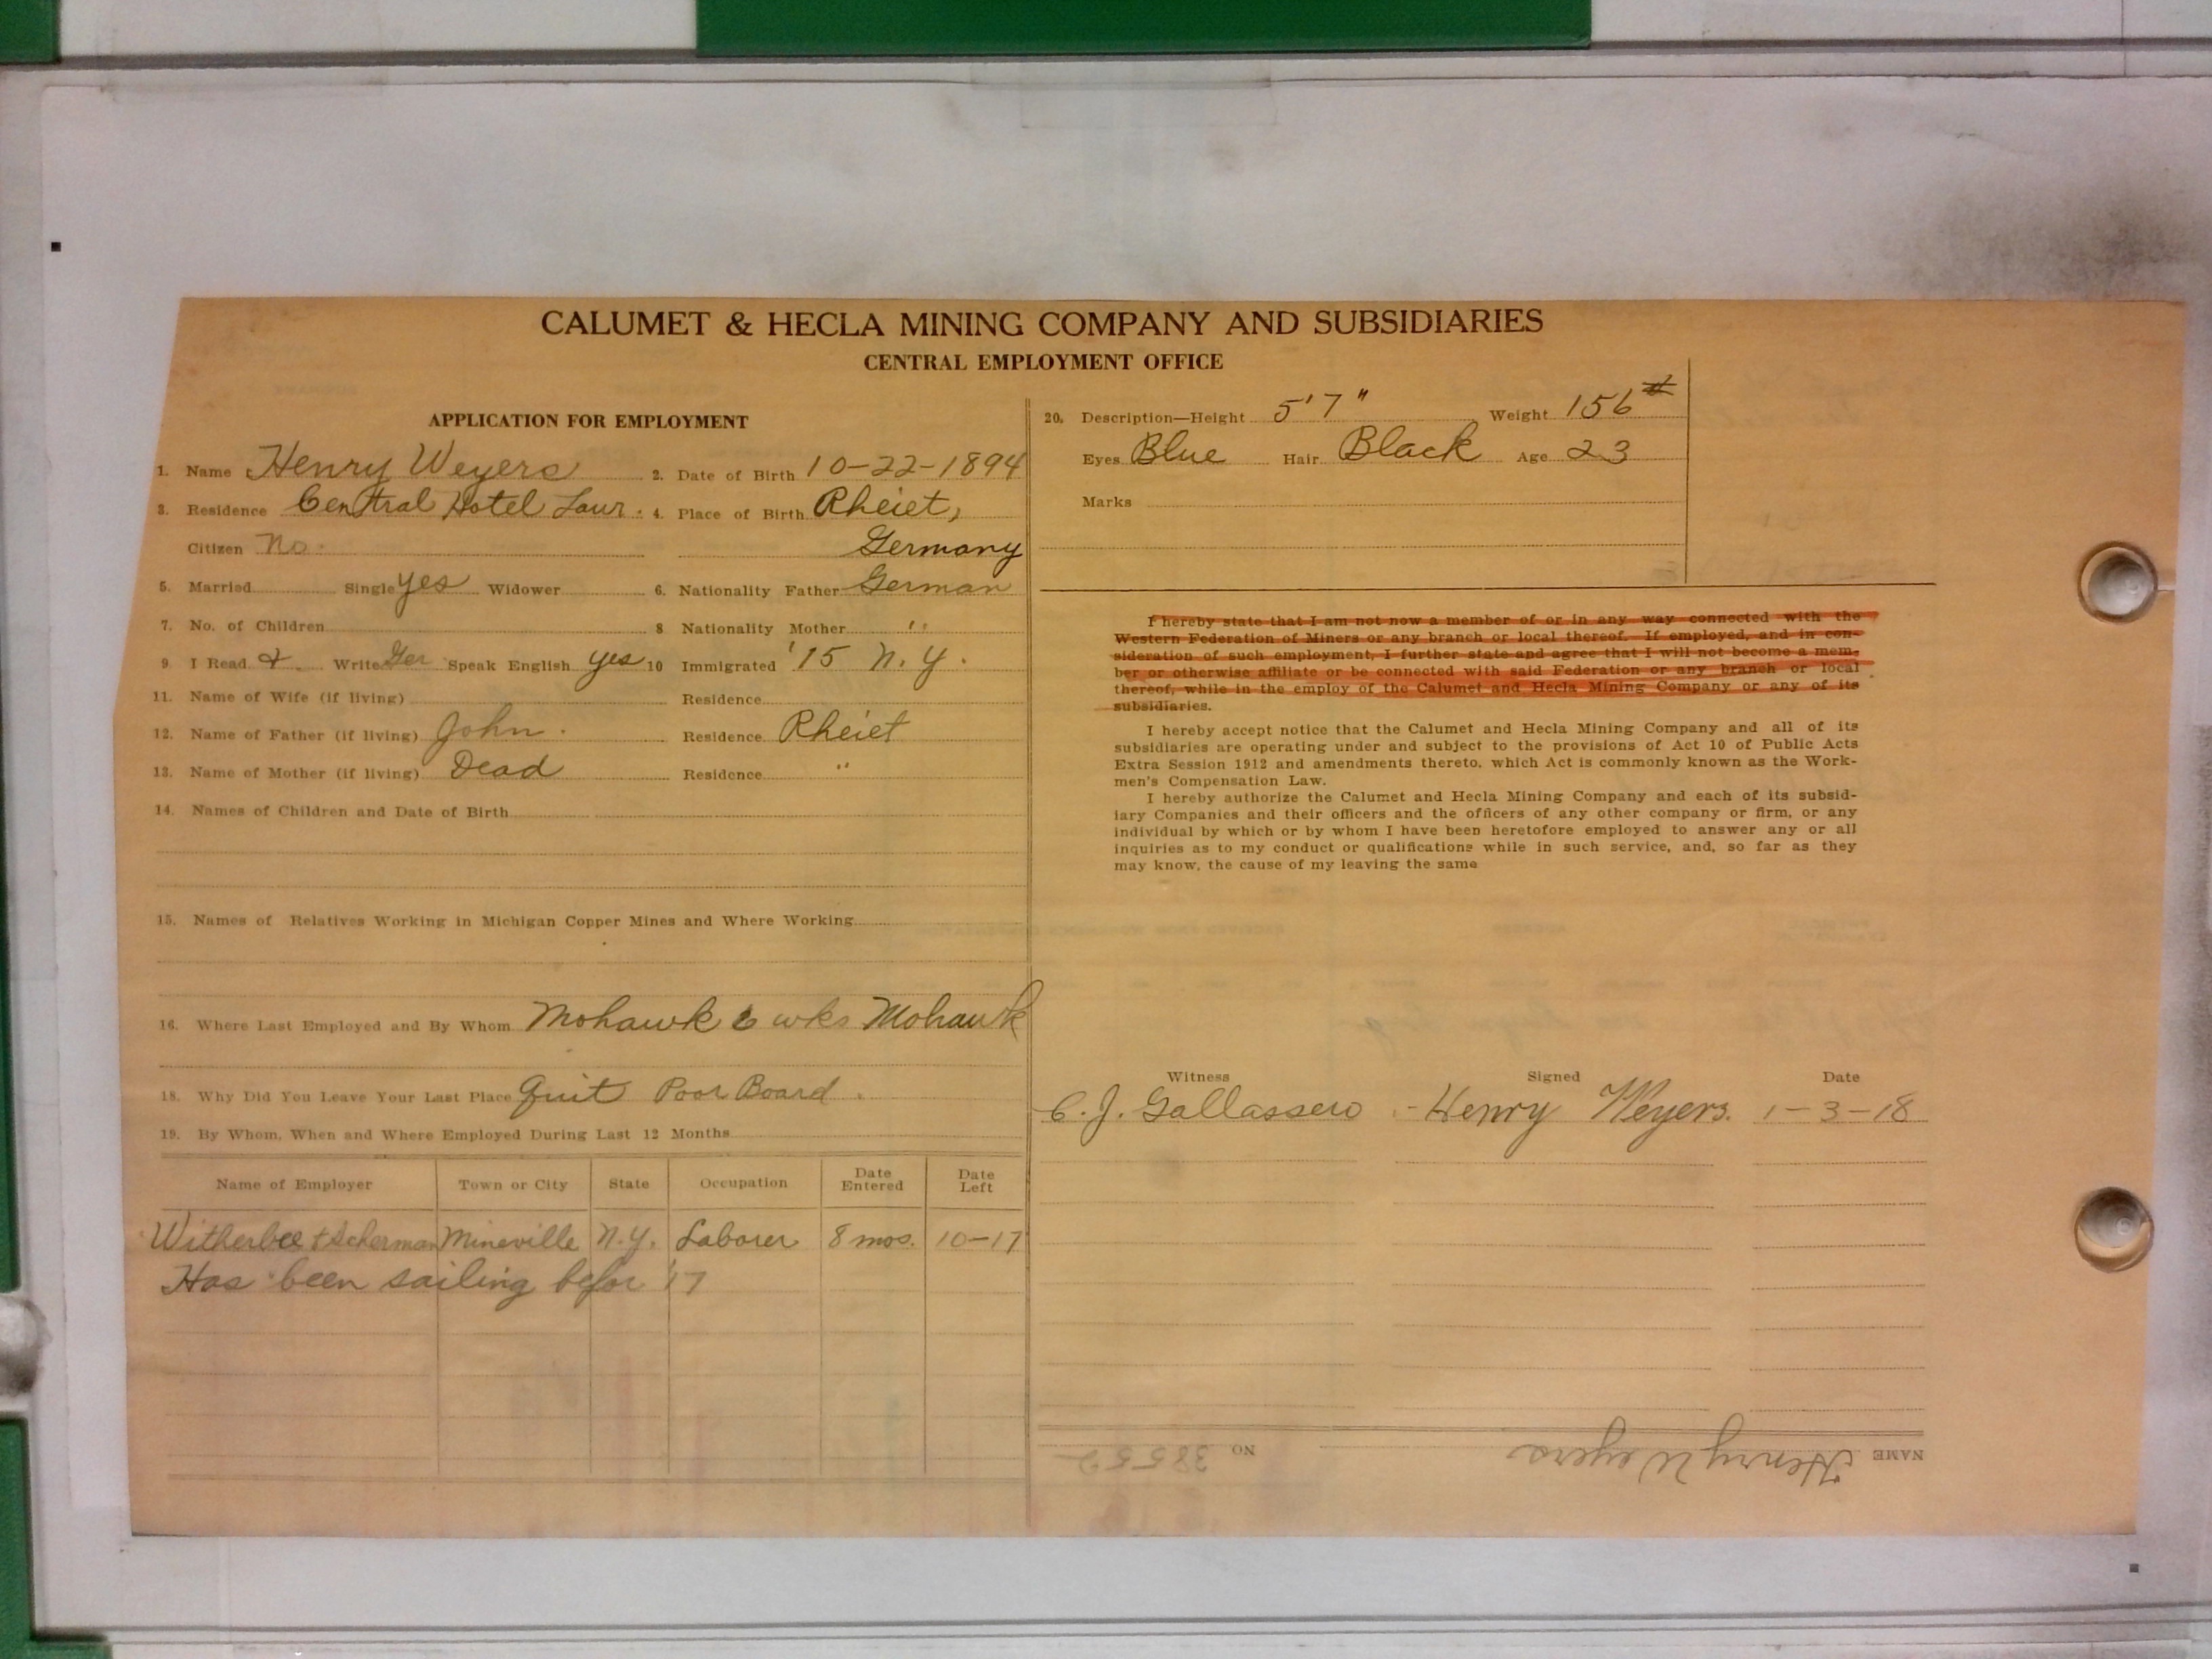 CALUMET & HECLA MINING COMPANY AND SUBSIDIARIES
CENTRAL EMPLOYMENT OFFICE
APPLICATION FOR EMPLOYMENT
1. Name Henry Weyers 2. Date of Birth 10-22-1894
3. Residence Central Hotel Laur. 4. Place of Birth Rheiet,
Citizen No. Germany
5. Married Single yes Widower 6. Nationality Father German
7. No. of Children 8 Nationality Mother "
9 I Read & Write Ger Speak English yes 10 Immigrated '15 N.Y.
11. Name of Wife (if living) Residence
12. Name of Father (if living) John. Residence Rheiet
13. Name of Mother (if living) Dead Residence "
14. Names of Children and Date of Birth
15. Names of Relatives Working in Michigan Copper Mines and Where Working
16. Where Last Employed and By Whom Mohawk 6 wks Mohawk
18. Why Did You Leave Your Last Place Quit Poor Board.
19. By Whom, When and Where Employed During Last 12 Months
Name of Employer Town or City State Occupation Date Entered Date Left
Witherbee + Scherman Mineville N.Y. Laborer 8 mos. 10-17
Has been sailing befor '17
20. Description—Height 5'7" Weight 156 #
Eyes Blue Hair Black Age 23
Marks
I hereby state that I am not now a member of or in any way connected with the
Western Federation of Miners or any branch or local thereof. If employed, and in con-
sideration of such employment, I further state and agree that I will not become a mem-
ber or otherwise affiliate or be connected with said Federation or any branch or local
thereof, while in the employ of the Calumet and Hecla Mining Company or any of its
subsidiaries.
I hereby accept notice that the Calumet and Hecla Mining Company and all of its
subsidiaries are operating under and subject to the provisions of Act 10 of Public Acts
Extra Session 1912 and amendments thereto, which Act is commonly known as the Work-
men's Compensation Law.
I hereby authorize the Calumet and Hecla Mining Company and each of its subsid-
iary Companies and their officers and the officers of any other company or firm, or any
individual by which or by whom I have been heretofore employed to answer any or all
inquiries as to my conduct or qualifications while in such service, and, so far as they
may know, the cause of my leaving the same
Witness Signed Date
C. J. Gallassero Henry Weyers. 1-3-18
NAME Henry Weyers NO 38552